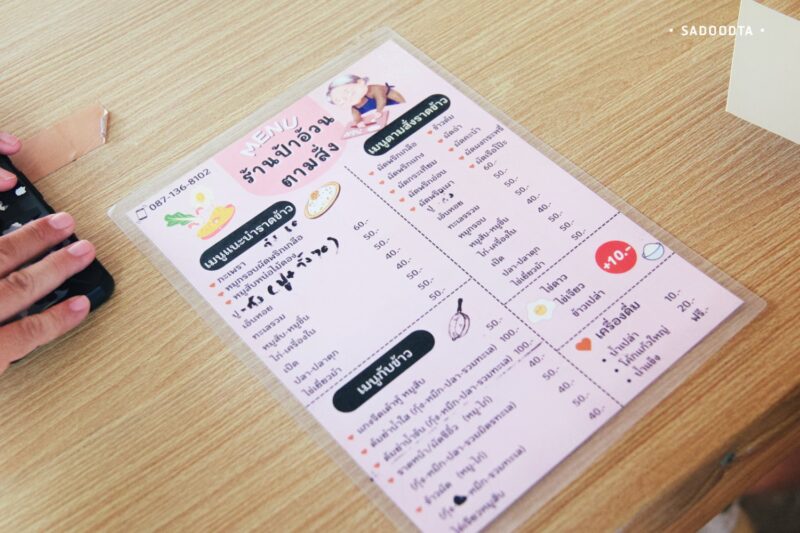 • SADOODTA •
MENU
ร้านป้าอ้วน
ตามสั่ง
087-136-8102
เมนูแนะนำราดข้าว
กะเพรา
หมูกรอบผัดพริกเกลือ
หมูสับหน่อไม้ดอง
ปู 60.-
เอ็นหอย 50.-
ทะเลรวม 50.-
หมูสับ-หมูชิ้น 40.-
ไก่-เครื่องใน 40.-
เป็ด 50.-
ปลา-ปลาดุก 50.-
ไข่เยี่ยวม้า 50.-
เมนูตามสั่งราดข้าว
ผัดพริกเกลือ
ผัดพริกแกง
ผัดกระเทียม
ผัดพริกอ่อน
ผัดพริกเผา
ข้าวต้ม
ผัดฉ่า
ผัดคะน้า
ผัดผงกะหรี่
ปู 60.-
เอ็นหอย 50.-
ทะเลรวม 50.-
หมูกรอบ 50.-
หมูสับ-หมูชิ้น 40.-
ไก่-เครื่องใน 40.-
เป็ด 50.-
ปลา-ปลาดุก 50.-
ไข่เยี่ยวม้า 50.-
ไข่ดาว
ไข่เจียว
ข้าวเปล่า
+10.-
เครื่องดื่ม
น้ำเปล่า 10.-
โค้กแก้วใหญ่ 20.-
น้ำแข็ง ฟรี.-
เมนูกับข้าว
แกงจืดเต้าหู้ หมูสับ 50.-
ต้มยำน้ำใส (กุ้ง-หมึก-ปลา-รวมทะเล) 100.-
ต้มยำน้ำข้น (กุ้ง-หมึก-ปลา-รวมทะเล) 100.-
ราดหน้า/ผัดซีอิ๊ว (หมู-ไก่) 40.-
(กุ้ง-หมึก-ปลา-รวมมิตรทะเล) 50.-
ข้าวผัด (หมู-ไก่) 40.-
-หมึก-ปลา-รวมทะเล) 50.-
ไข่เจียวหมูสับ 40.-